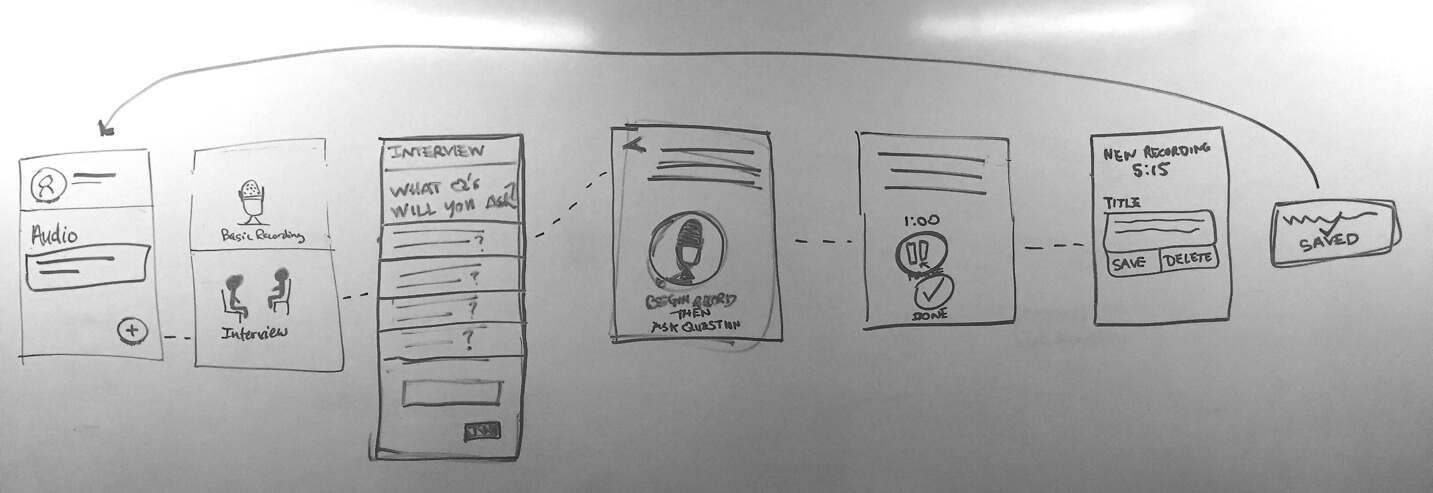 Audio
+
Basic Recording
Interview
INTERVIEW
WHAT Q'S
WILL YOU ASK?
?
?
?
?
BEGIN RECORD
THEN
ASK QUESTION
1:00
DONE
NEW RECORDING
5:15
TITLE
SAVE DELETE
SAVED